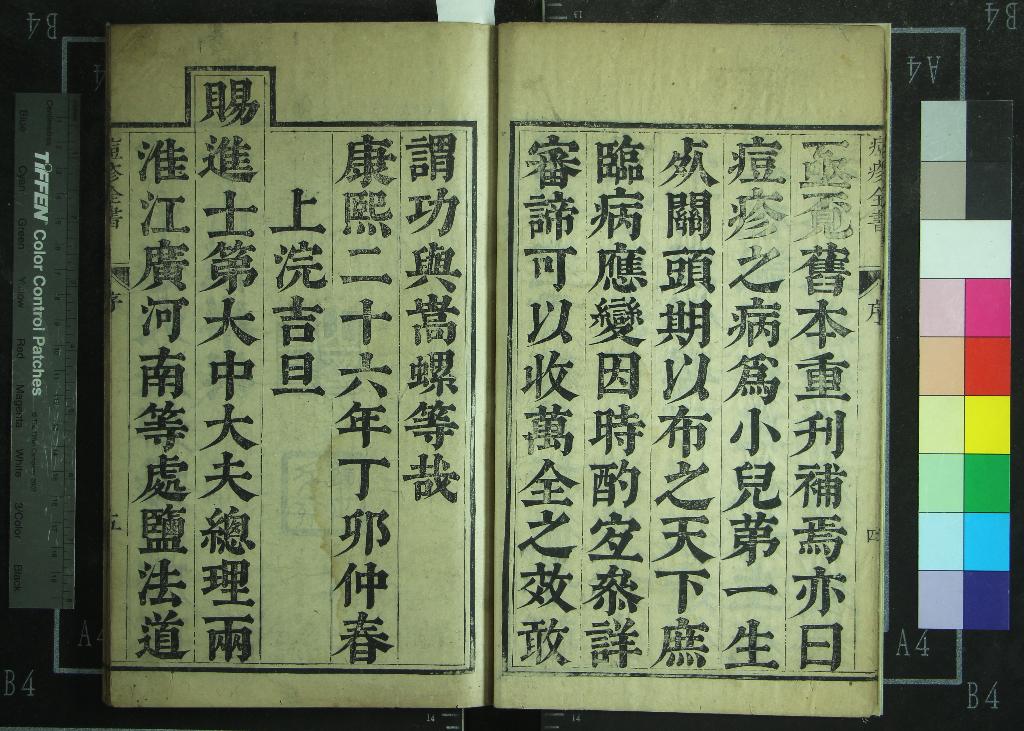 亟覓舊本重刋補焉亦曰
痘疹之病爲小兒第一生
死關頭期以布之天下庶
臨病應變因時酌宜叅詳
審諦可以收萬全之效敢
謂功與嵩螺等哉
康熙二十六年丁卯仲春
上浣吉旦
賜進士第大中大夫總理兩
淮江廣河南等處鹽法道
痘疹全書
序
四
痘疹全書
序
五
TIFFEN Color Control Patches
Blue
Cyan
Green
Yellow
Red
Magenta
White
3/Color
Black
B4
A4
B4
A4
A4
B4
A4
B4
14
14